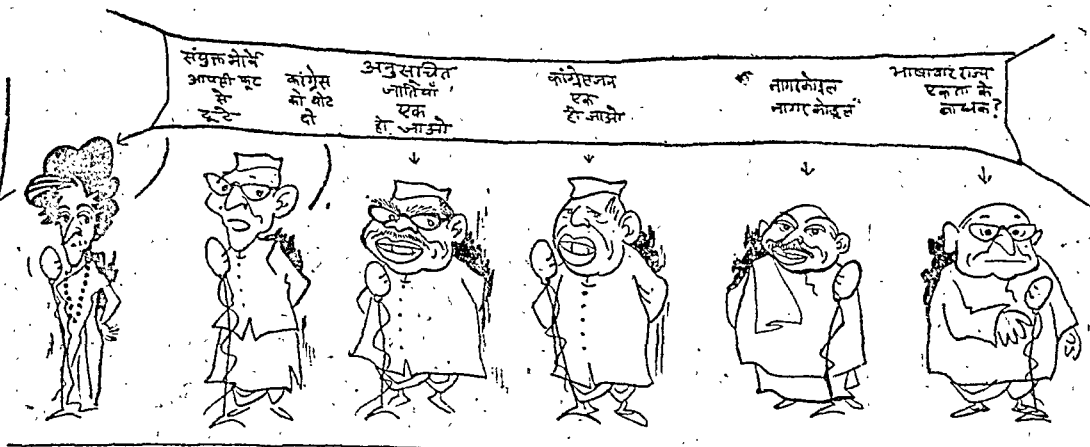 संयुक्त मोर्चे
आपसी फूट
से
टूटे
कांग्रेस
को वोट
दो
अनुसूचित
जातियाँ
एक
हो जाओ
कांग्रेसजन
एक
हो जाओ
नागरकोइल
नागरकोइल
भाषावार राज्य
एकता के
बाधक?